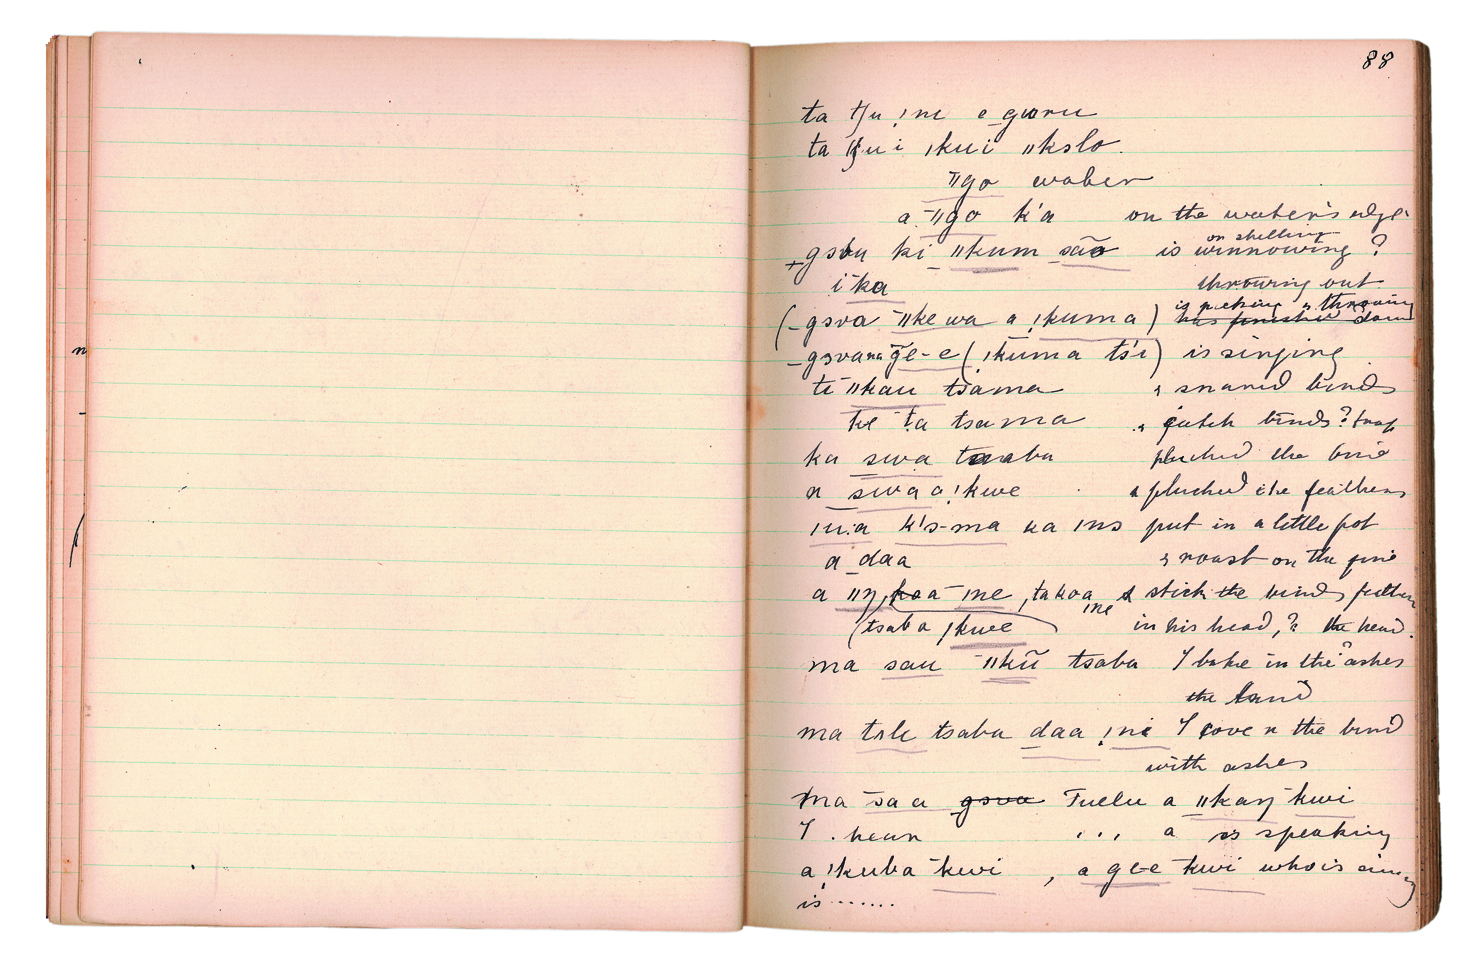 88
ta !ne e gwru
ta ǀkui ǁkslo.
ǁgo water
a ǁgo k'a on the water's edge
or shelling
gsbu ki ǁkum sāō is winnowing ?
i ka throwing out
is picking & throwing
(gsva ǁke wa a !kuma) has finished down
gsvana ge-e (ǀkuma ts'i) is singing
ti ǁkau tsama & snared birds
ke ta tsama & catch birds? trap
ka swa tsaba plucked the bird
n swa a !kwe & plucked the feathers
k's-ma ka ins put in a little pot
a daa & roast on the fire
a ǁŋ ǀne, takoa ǀne & stick the birds feathers
(tsaba ǀkwe in his head, ? the head.
ma sau ǁkū tsaba I bake in the ? ashes
the sand
ma tsle tsaba daa !ne I cover the bird
with ashes
ma sa a gsva Tuelu a ǁkaŋ kwi
I . hear ... a is speaking
a !kuba kwi , a ge-e kwi who is singing
is .......